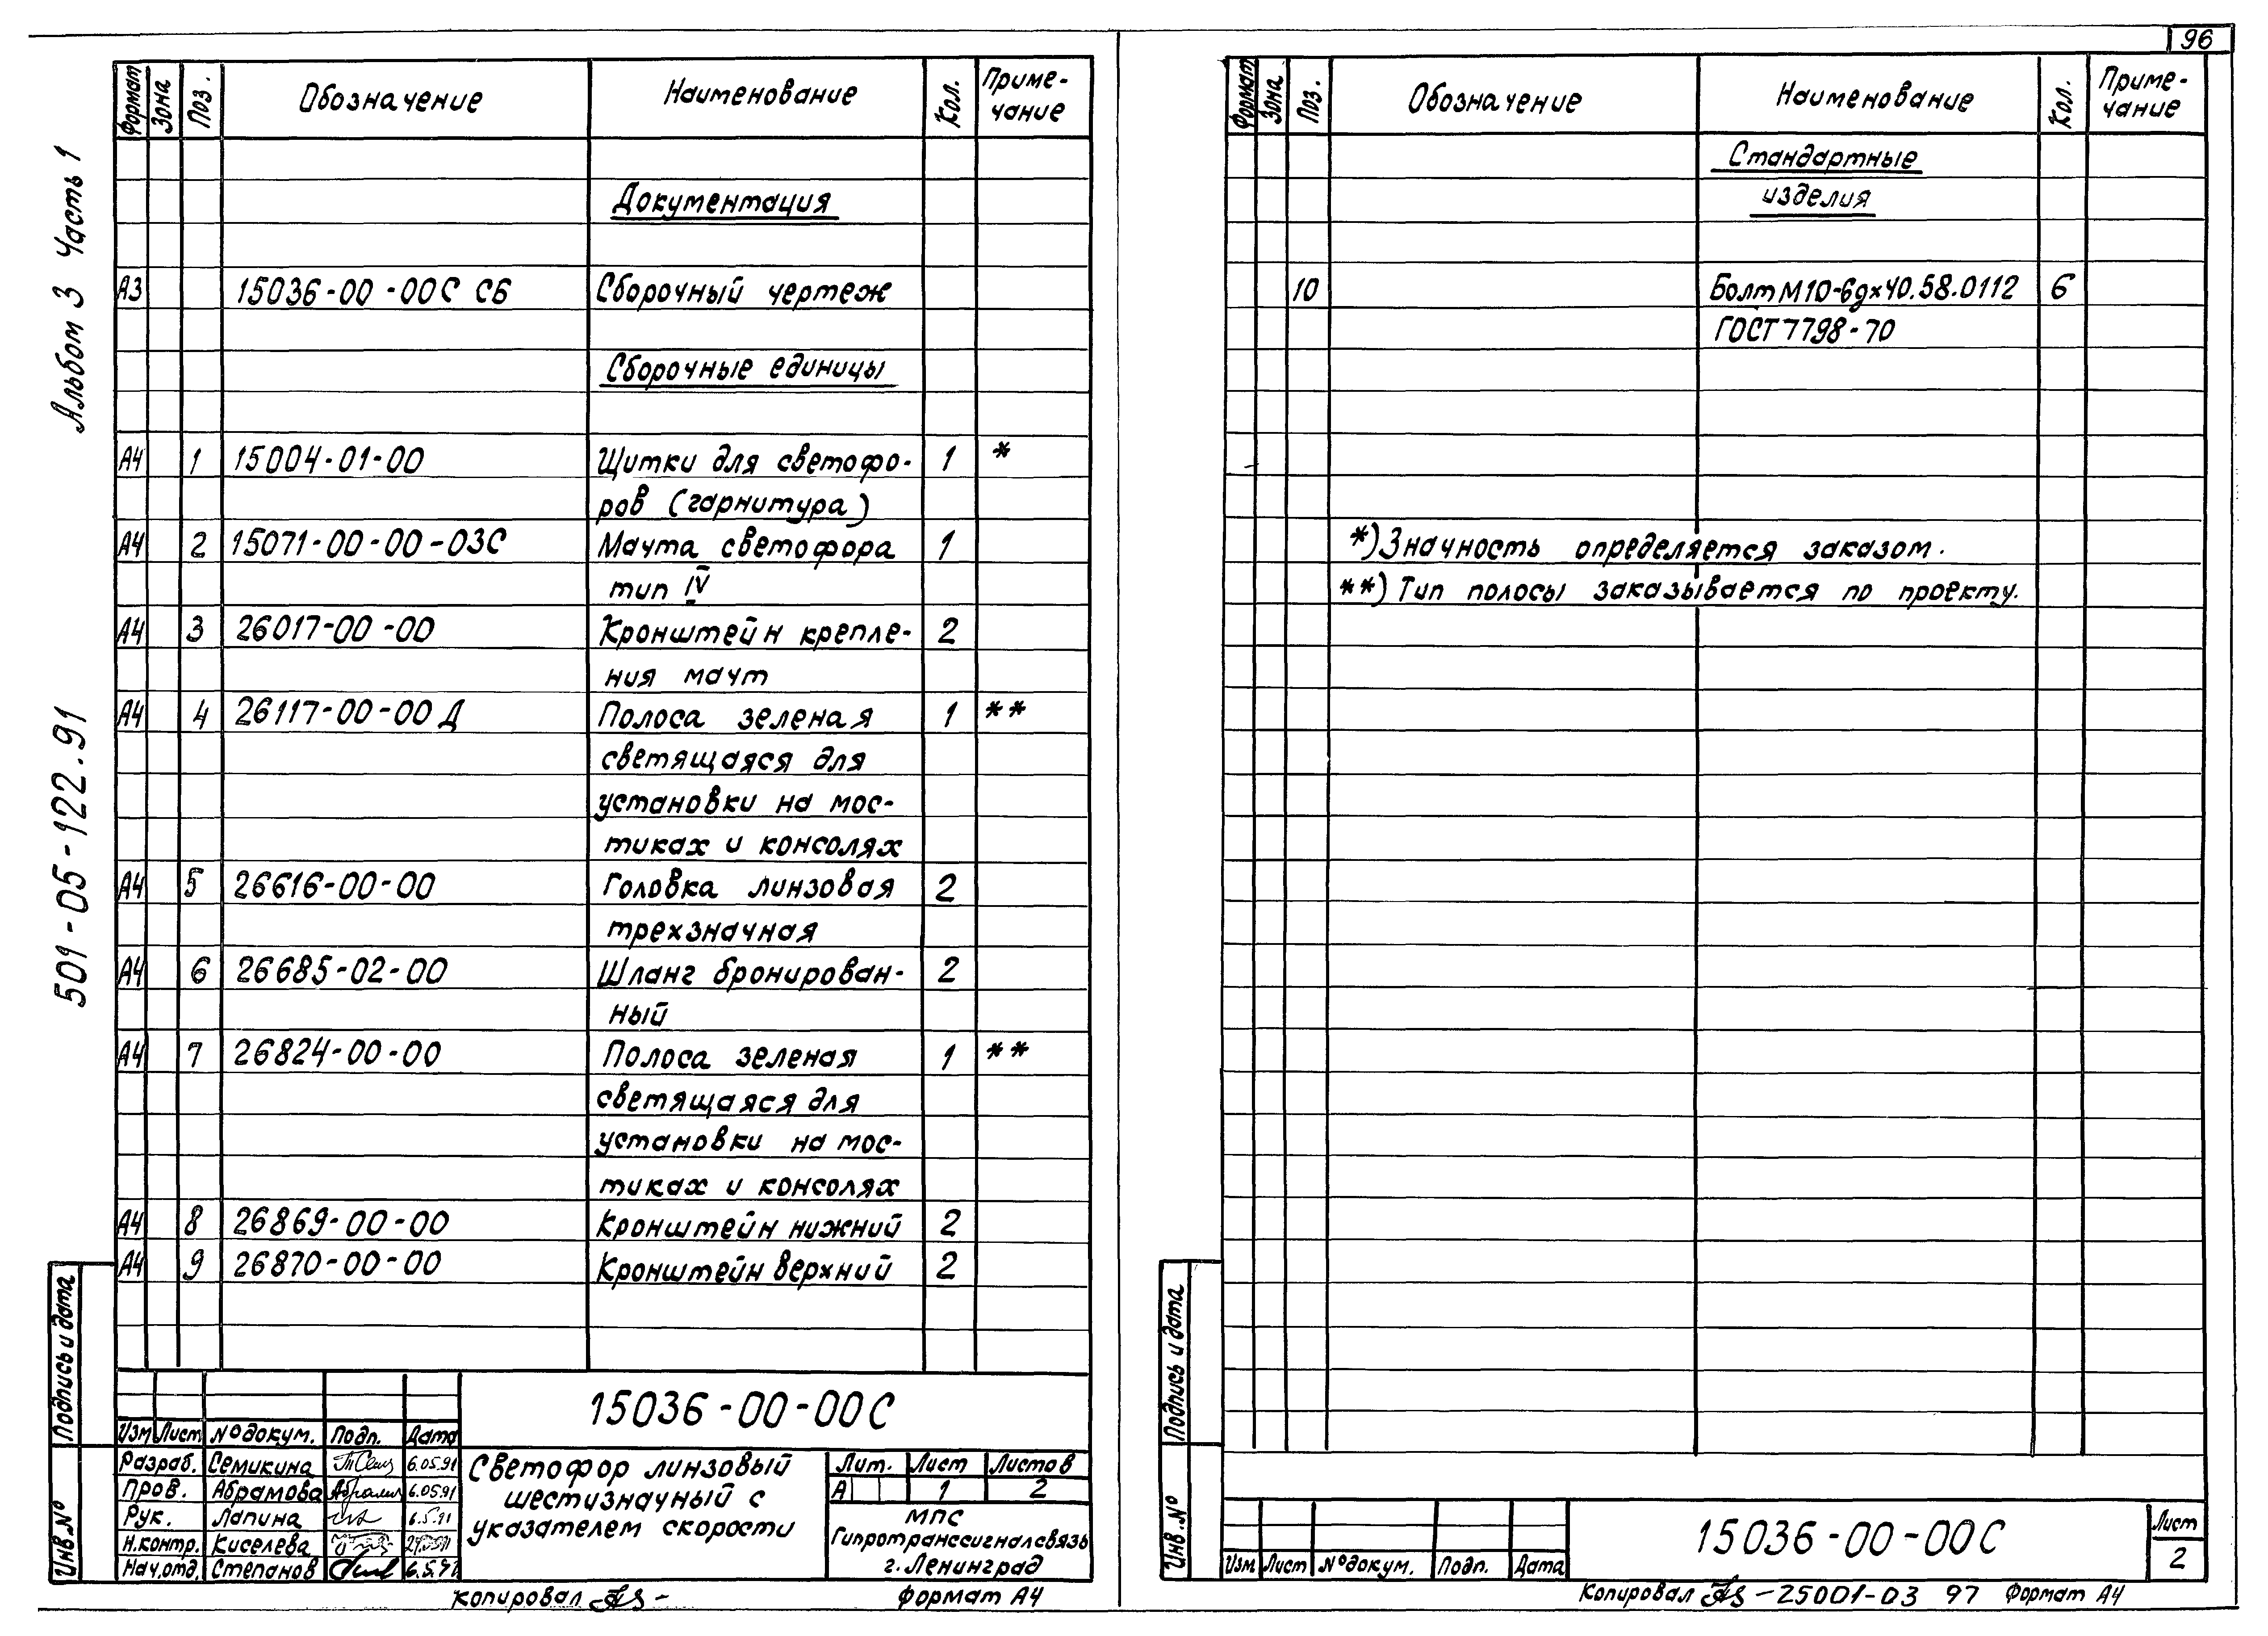 96
Альбом 3 Часть 1
501-05-122.91
Формат Зона Поз. Обозначение Наименование Кол. Приме-
чание
Документация
А3 15036-00-00С СБ Сборочный чертеж
Сборочные единицы
А4 1 15004-01-00 Щитки для светофо- 1 *
ров (гарнитура)
А4 2 15071-00-00-03С Мачта светофора 1
тип IV
А4 3 26017-00-00 Кронштейн крепле- 2
ния мачт
А4 4 26117-00-00 Д Полоса зеленая 1 **
светящаяся для
установки на мос-
тиках и консолях
А4 5 26616-00-00 Головка линзовая 2
трехзначная
А4 6 26685-02-00 Шланг бронирован- 2
ный
А4 7 26824-00-00 Полоса зеленая 1 **
светящаяся для
установки на мос-
тиках и консолях
А4 8 26869-00-00 Кронштейн нижний 2
А4 9 26870-00-00 Кронштейн верхний 2
Подпись и дата
Инв.№
15036-00-00С
Изм Лист №докум. Подп. Дата
Разраб. Семикина 6.05.91
Пров. Абрамова 6.05.91
Рук. Лапина 6.5.91
Н.контр. Киселева
Нач.отд. Степанов 6.5.91
Светофор линзовый
шестизначный с
указателем скорости
Лит. Лист Листов
А 1 2
МПС
Гипротранссигналсвязь
г. Ленинград
Копировал
Формат А4
Формат Зона Поз. Обозначение Наименование Кол. Приме-
чание
Стандартные
изделия
10 Болт М10-6gх40.58.0112 6
ГОСТ 7798-70
*) Значность определяется заказом.
**) Тип полосы заказывается по проекту.
Подпись и дата
Инв.№
Изм Лист №докум. Подп. Дата
15036-00-00С
Лист
2
Копировал -25001-03 97 Формат А4